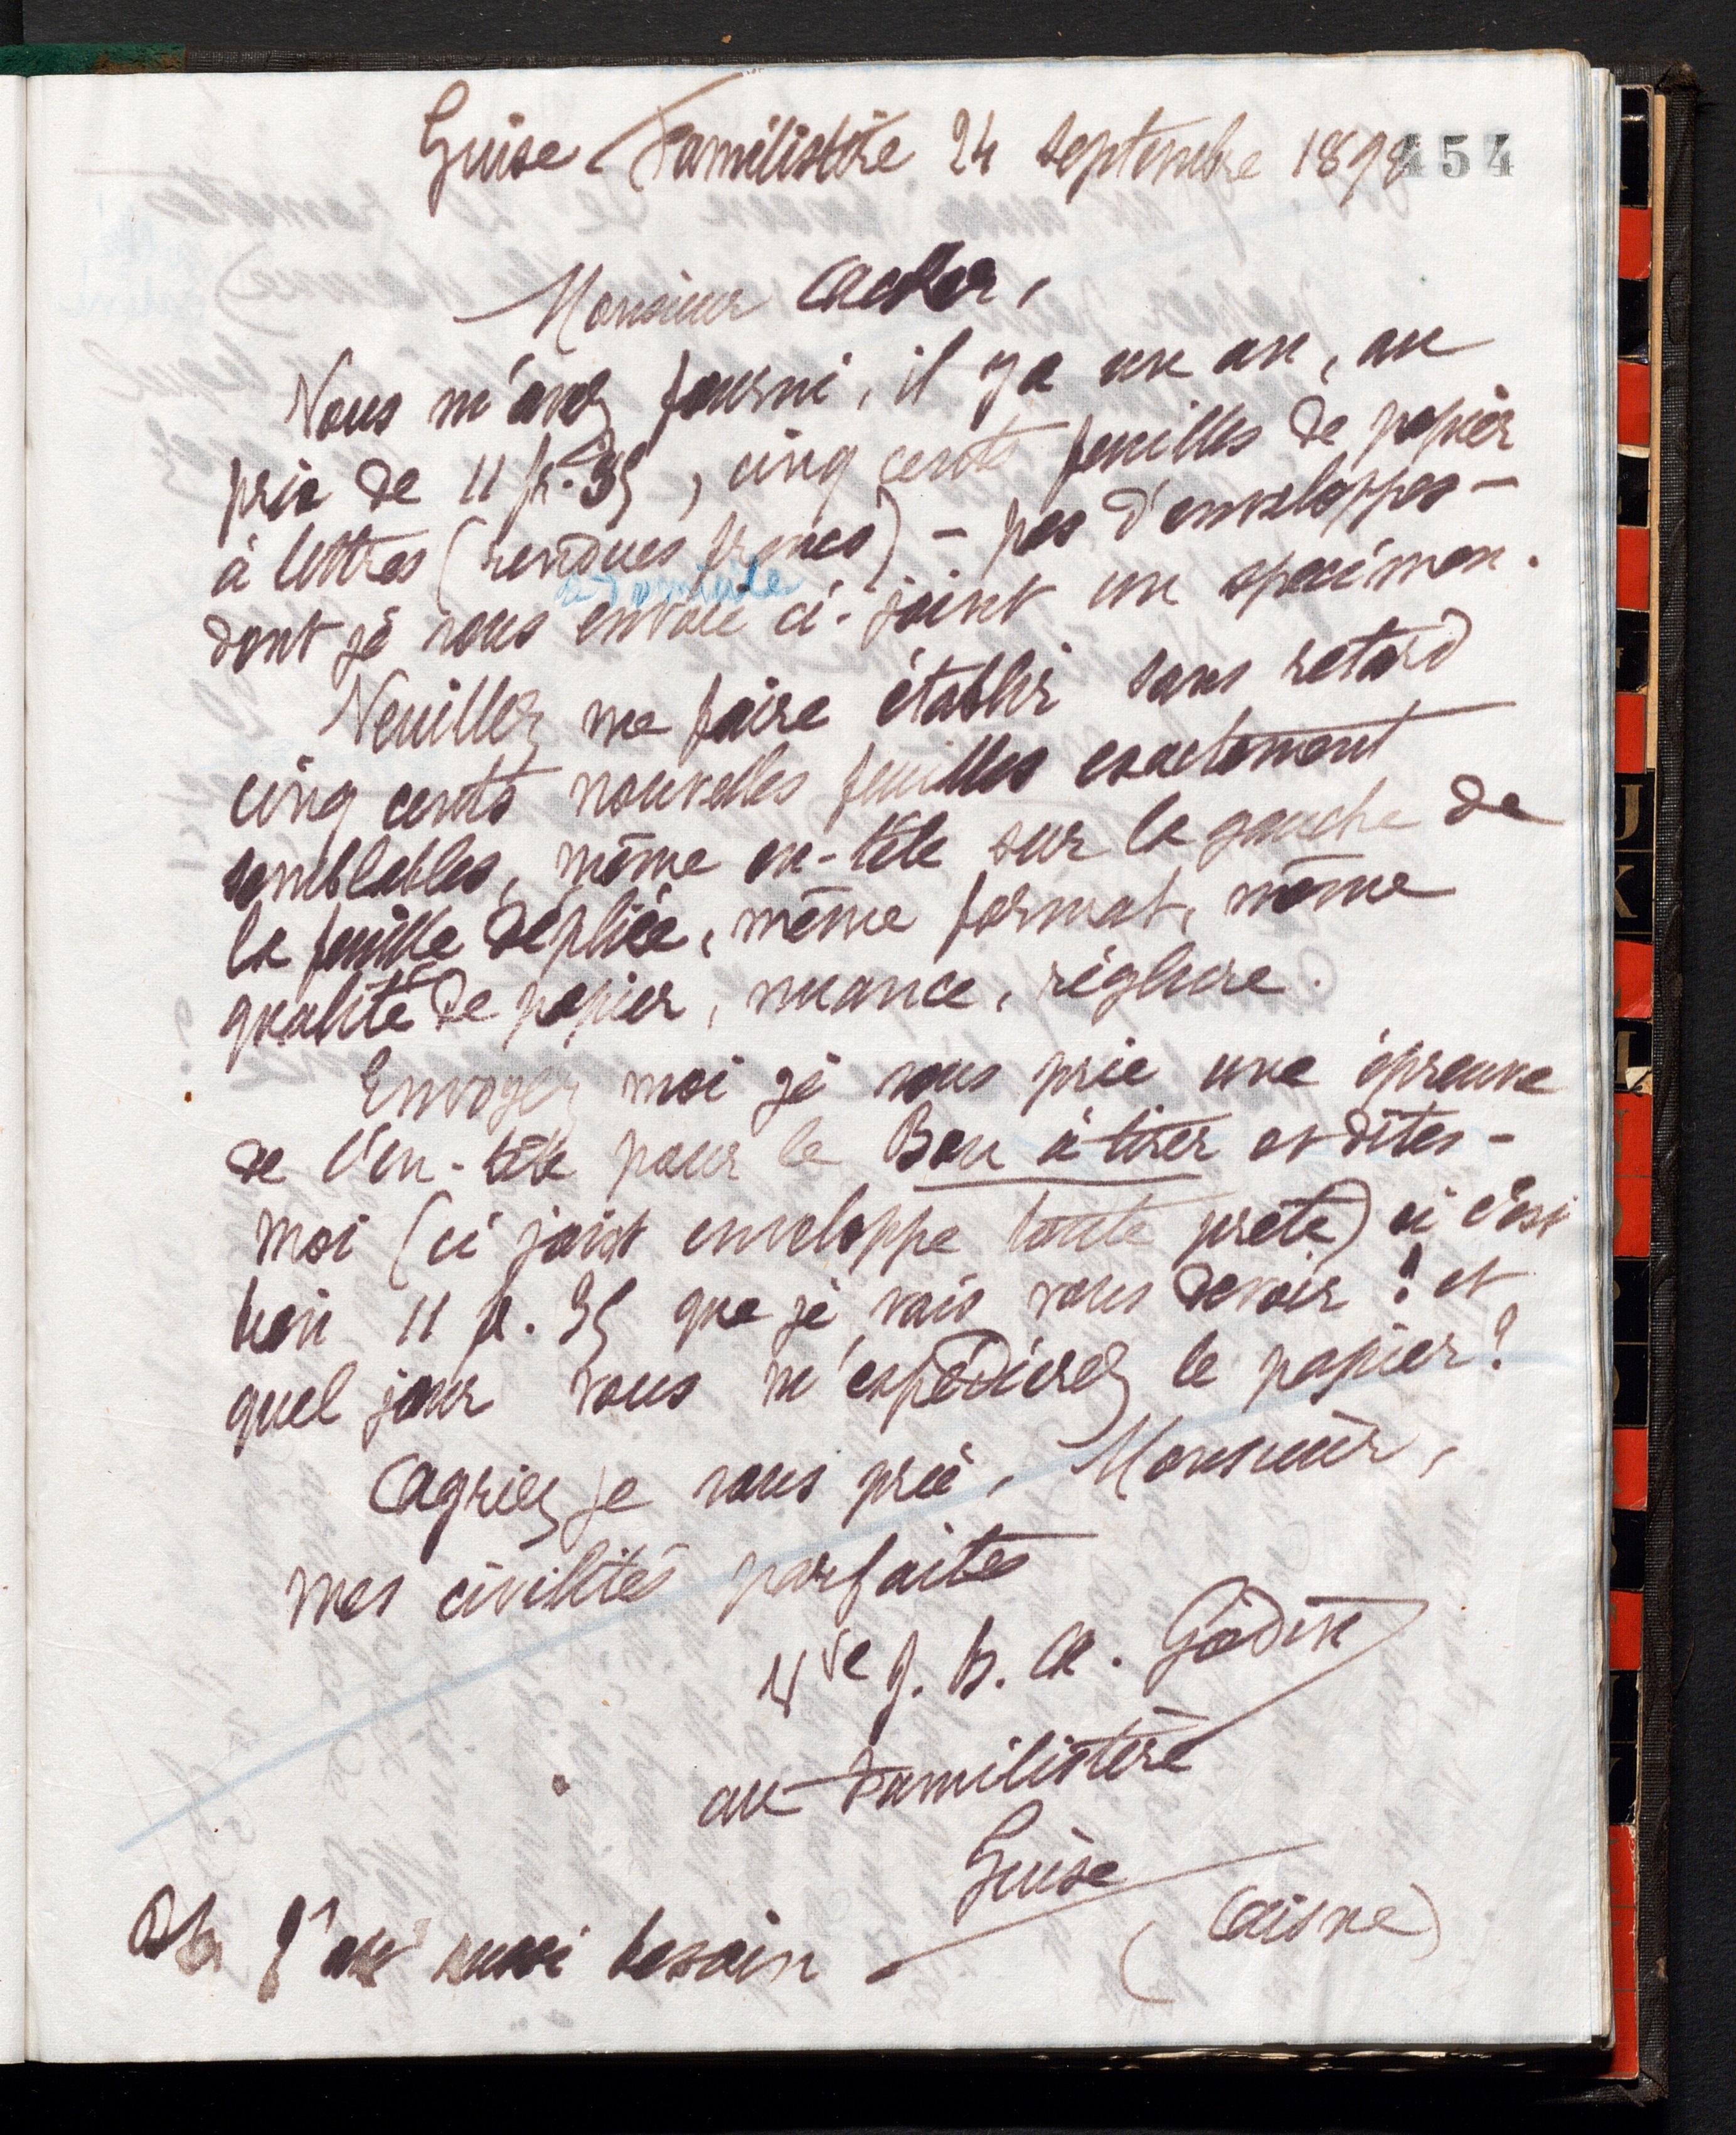 454
Guise Familistère 24 septembre 1898
Monsieur
Vous m'avez fourni, il y a un an, au
prix de 11 fr. 35, cinq cents feuilles de papier
à lettres (rendues francs) - pas d'enveloppes -
à domicile
dont je vous envoie ci-joint un spécimen.
Veuillez me faire établir sans retard
cinq cents nouvelles feuilles exactement
semblables, même en-tête sur la gauche de
la feuille dépliée, même format, même
qualité de papier, nuance, réglure.
Envoyez moi je vous prie une épreuve
de l'en-tête pour le Bon à tirer et dites-
moi (ci joint enveloppe toute prete) si c'est
bien 11 fr. 35 que je vais vous devoir ? et
quel jour vous m'expédierez le papier ?
Agriez je vous prie, Monsieur,
mes civilités parfaites
Vve J. B. A. Godin
au Familistère
Guise
(Aisne)
J'ai aussi besoin